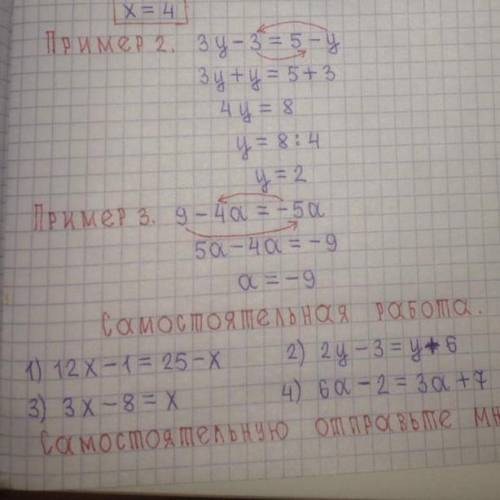 x = 4
Пример 2. 3y - 3 = 5 - y
3y + y = 5 + 3
4y = 8
y = 8 : 4
y = 2
Пример 3. 9 - 4a = -5a
5a - 4a = -9
a = -9
Самостоятельная работа.
1) 12x - 1 = 25 - x 2) 2y - 3 = y + 6
3) 3x - 8 = x 4) 6a - 2 = 3a + 7
Самостоятельную отправьте